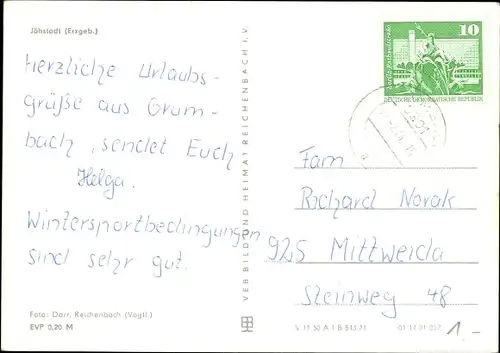 Jöhstadt (Erzgeb.)
Herzliche Urlaubs-
grüße aus Grum-
bach, sendet Euch
Helga.
Wintersportbedingungen
sind sehr gut.
Foto: Darr, Reichenbach (Vogtl.)
EVP 0,20 M
VEB BILD UND HEIMAT REICHENBACH I. V.
10
DEUTSCHE DEMOKRATISCHE REPUBLIK
Fam
Richard Novak
925 Mittweida
Steinweg 48
01 17 01 027
1-